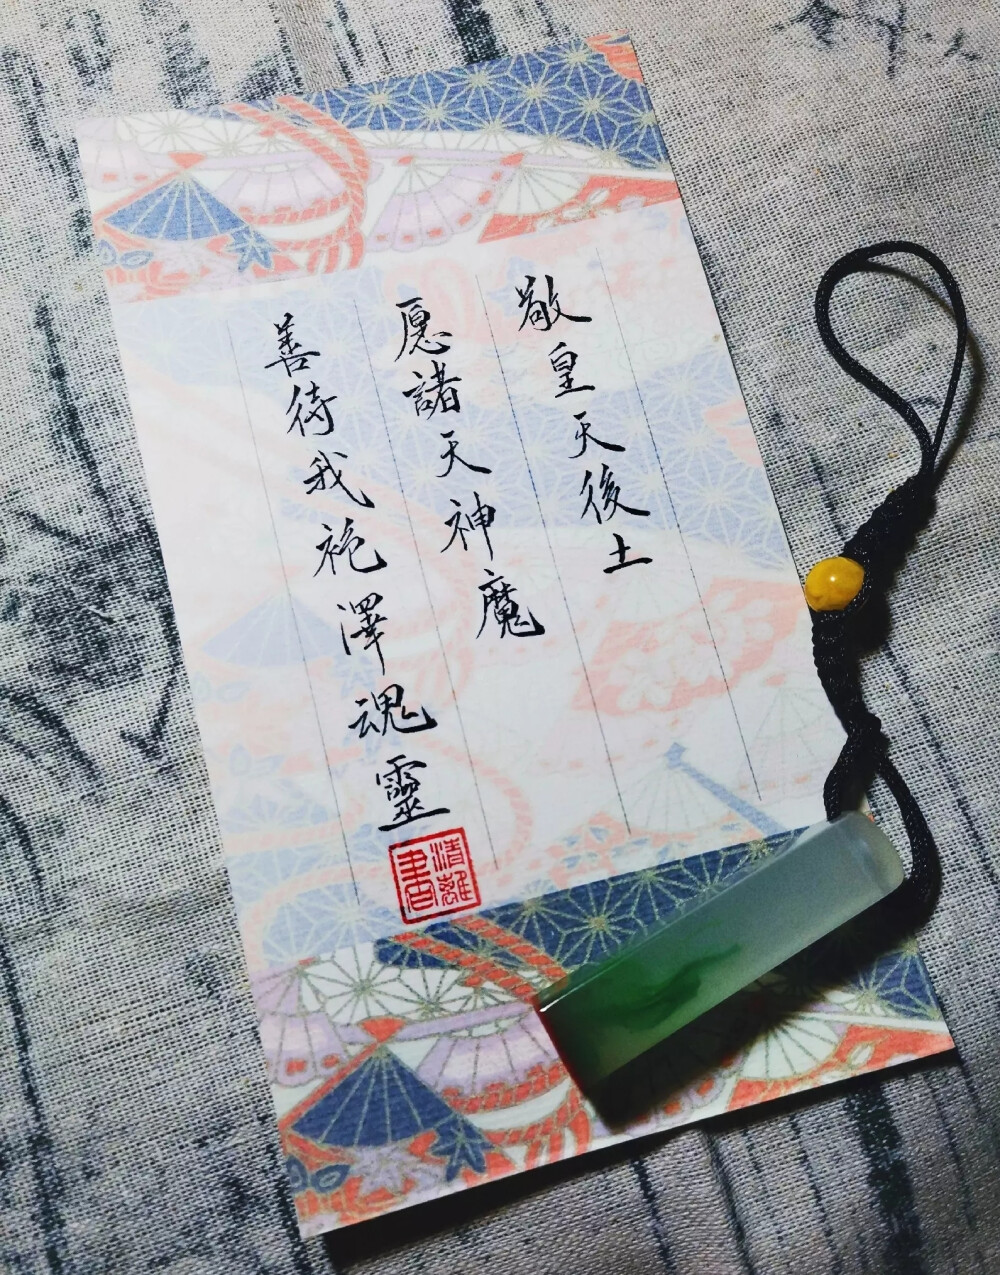 敬皇天後土
愿諸天神魔
善待我袍澤魂靈
清離書